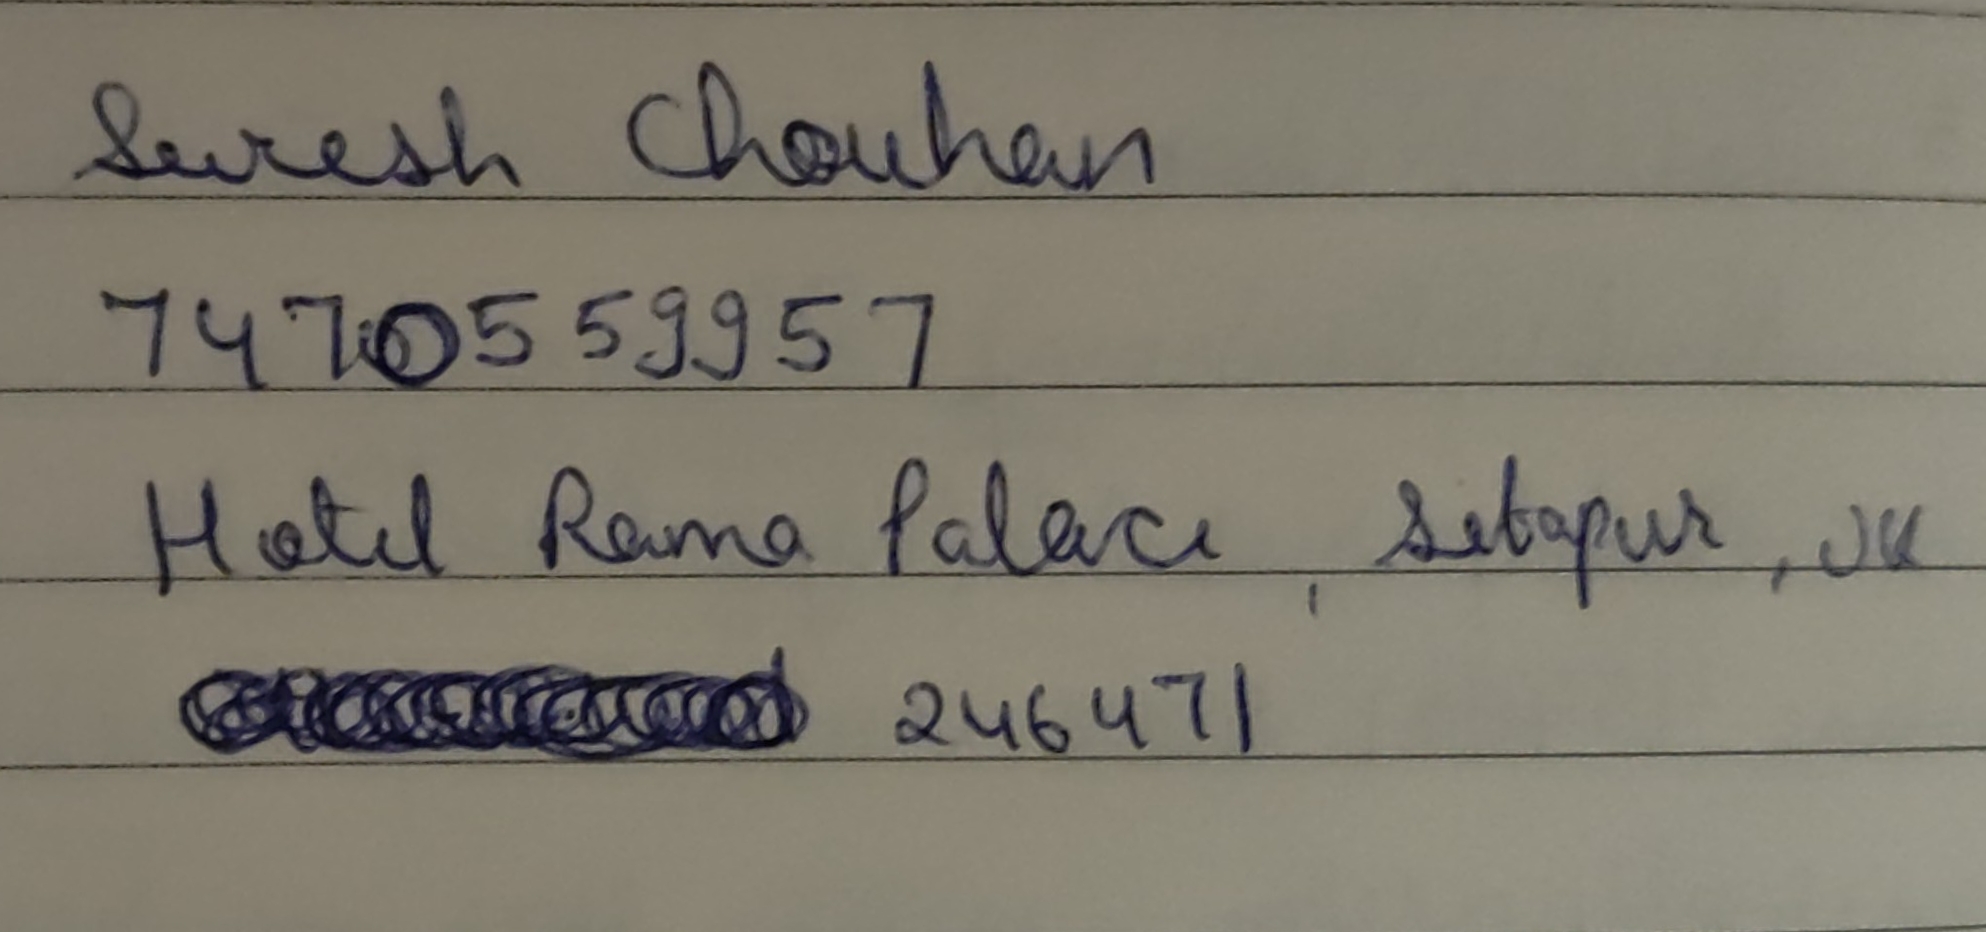 Suresh Chouhan
7470559957
Hotel Rama Palace, Sitapur, UK
246471